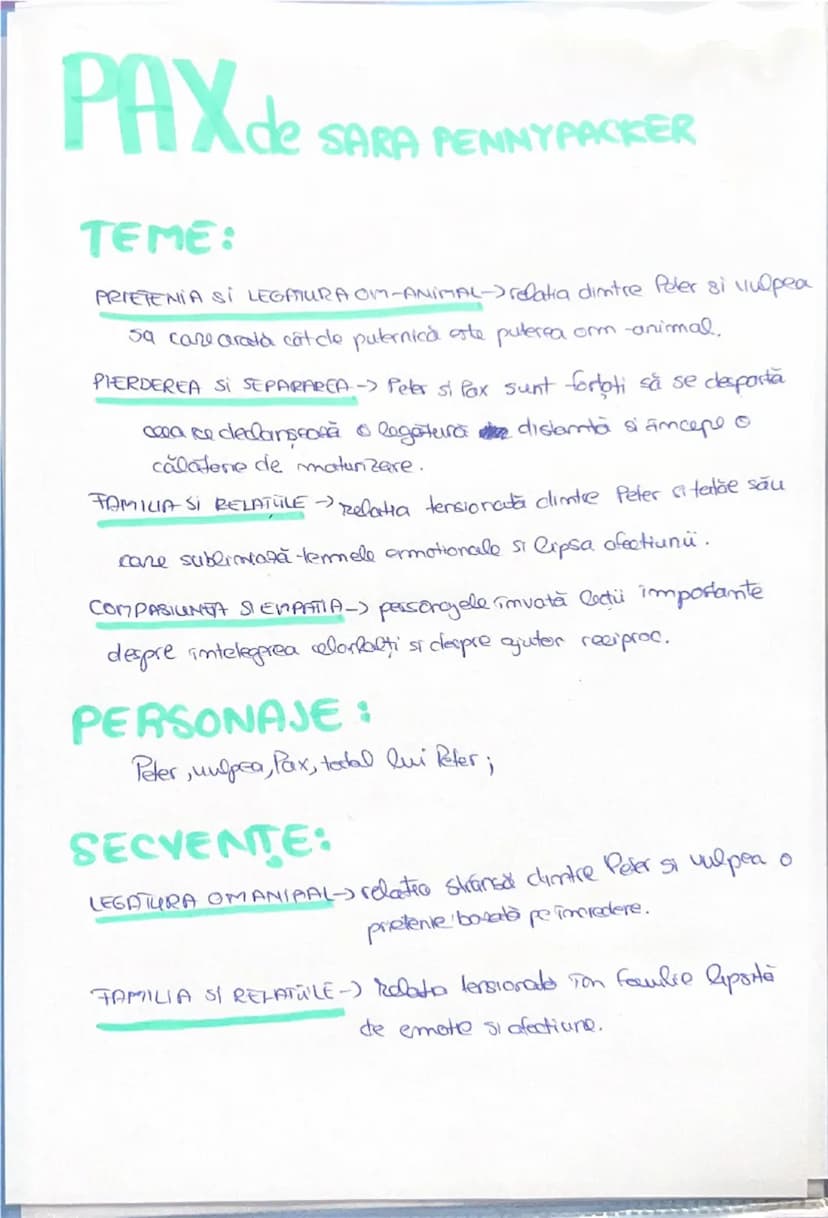 PAX de SARA PENNYPACKER
TEME:
PRIETENIA SI LEGATURA OM-ANIMAL -> relatia dintre Peter si vulpea
sa care arată cât de puternică este puterea om-animal.
PIERDEREA SI SEPARAREA -> Peter si Pax sunt forțați să se despartă
ceea ce declanșează o legătură distantă si începe o
călătorie de maturizare.
FAMILIA SI RELATIILE -> relatia tensionată dintre Peter si tatăl său
care subliniază temele emotionale si lipsa afectiunii.
COMPASIUNEA SI EMPATIA -> personajele învată lectii importante
despre intelegerea celorlalți si despre ajutor reciproc.
PERSONAJE:
Peter, vulpea, Pax, tatal lui Peter;
SECVENȚE:
LEGATURA OM ANIMAL -> relatia strânsă dintre Peter si vulpea o
prietenie bazată pe încredere.
FAMILIA SI RELATIILE -> Relatia tensionată în familie lipsită
de emotie si afectiune.